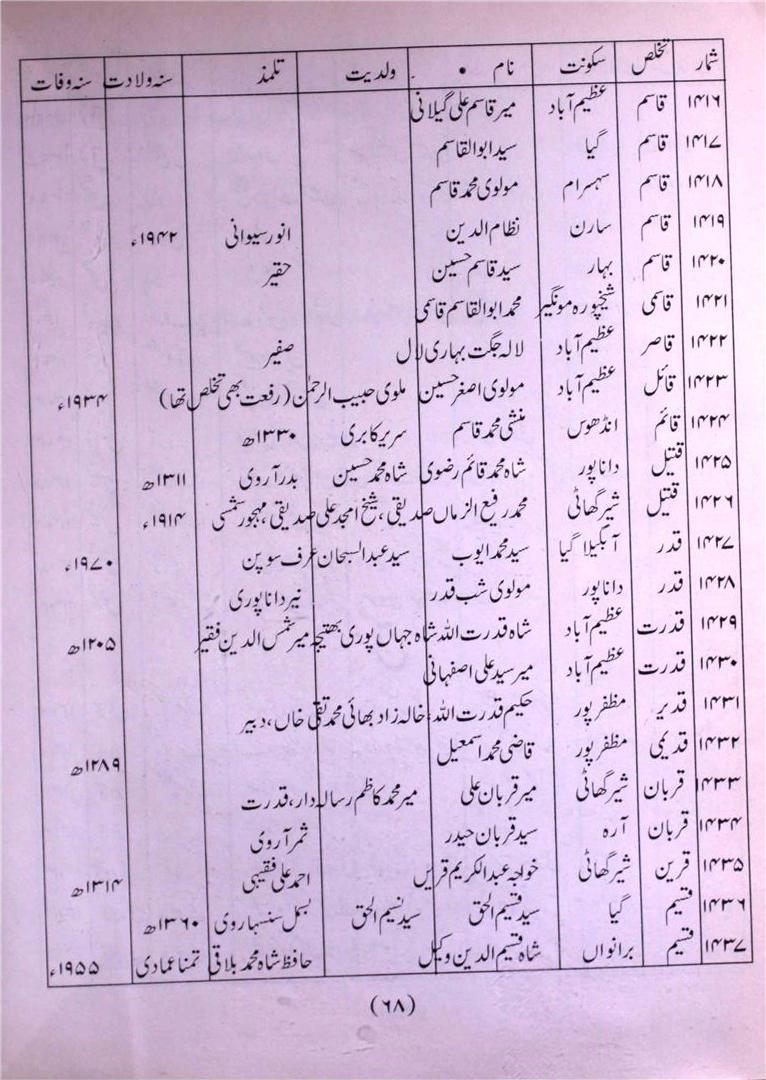 شمار تخلص سکونت نام ولدیت تلمذ سنہ ولادت سنہ وفات
۱۴۱۶ قاسم عظیم آباد میر قاسم علی گیلانی
۱۴۱۷ قاسم گیا سید ابوالقاسم
۱۴۱۸ قاسم سہسرام مولوی محمد قاسم
۱۴۱۹ قاسم سارن نظام الدین انور سیوانی ۱۹۴۲ء
۱۴۲۰ قاسم بہار سید قاسم حسین حقیر
۱۴۲۱ قاسمی شیخپورہ مونگیر محمد ابوالقاسم قاسمی
۱۴۲۲ قاصر عظیم آباد لالہ جگت بہاری لال صفیر
۱۴۲۳ قائل عظیم آباد مولوی اصغر حسین ملوی حبیب الرحمٰن (رفعت بھی تخلص تھا) ۱۹۳۴ء
۱۴۲۴ قائم انڈھوس منشی محمد قاسم سریر کابری ۱۳۳۰ھ
۱۴۲۵ قتیل داناپور شاہ محمد قائم رضوی شاہ محمد حسین بدر آروی ۱۳۱۱ھ
۱۴۲۶ قتیل شیرگھاٹی محمد رفیع الزماں صدیقی، شیخ امجد علی صدیقی، مہجور شمسی ۱۹۱۴ء
۱۴۲۷ قدر آبگیلا گیا سید محمد ایوب سید عبدالسبحان عرف سوپن ۱۹۷۰ء
۱۴۲۸ قدر داناپور مولوی شب قدر نیر داناپوری
۱۴۲۹ قدرت عظیم آباد شاہ قدرت اللہ شاہ جہاں پوری بھتیجہ میر شمس الدین فقیر ۱۲۰۵ھ
۱۴۳۰ قدرت عظیم آباد میر سید علی اصفہانی
۱۴۳۱ قدیر مظفرپور حکیم قدرت اللہ، خالہ زاد بھائی محمد تقی خاں، دبیر
۱۴۳۲ قدیمی مظفرپور قاضی محمد اسمعیل ۱۲۸۹ھ
۱۴۳۳ قربان شیرگھاٹی میر قربان علی میر محمد کاظم رسالہ دار، قدرت
۱۴۳۴ قربان آرہ سید قربان حیدر ثمر آروی
۱۴۳۵ قرین شیرگھاٹی خواجہ عبدالکریم احمد علی فقیہی ۱۳۱۴ھ
۱۴۳۶ قسیم گیا سید قسیم الحق سید نسیم الحق بسمل سنسہاروی ۱۳۶۰ھ
۱۴۳۷ قسیم برانواں شاہ قسیم الدین وکیل حافظ شاہ محمد بلاقی تمنا عمادی ۱۹۵۵ء
(۶۸)